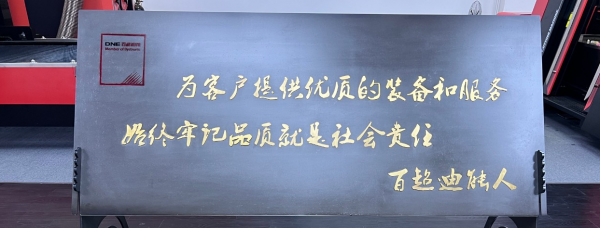 DNE 百超迪能
Member of Bystronic
为客户提供优质的装备和服务
始终牢记品质就是社会责任
百超迪能人